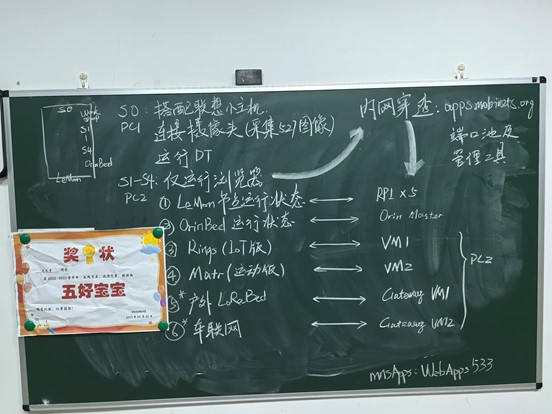 S0
S1
S4
OrinBed
LeMon
S0: 搭配联想小主机
PC1 连接摄像头(采集527图像)
运行DT
S1-S4: 仅运行浏览器
PC2 ① LeMon节点运行状态 ↔ RPI×5
② OrinBed 运行状态 ↔ Orin Master
③ Rings (IoT版) ↔ VM1
④ Matr (运动版) ↔ VM2
⑤* 户外 LoRaBed ↔ Gateway VM1
⑥* 车联网 ↔ Gateway VM2
PC2
内网穿透: apps.mobinets.org
端口池及
管理工具
mnsApps: WebApps533
奖状
五好宝宝